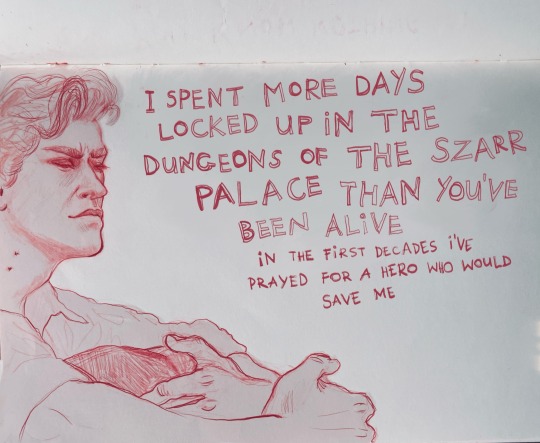 I SPENT MORE DAYS
LOCKED UP IN THE
DUNGEONS OF THE SZARR
PALACE THAN YOU'VE
BEEN ALIVE
IN THE FIRST DECADES I'VE
PRAYED FOR A HERO WHO WOULD
SAVE ME